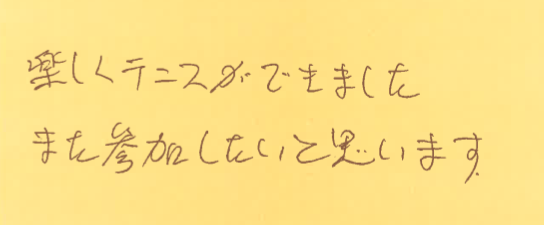 楽しくテニスができました
また参加したいと思います